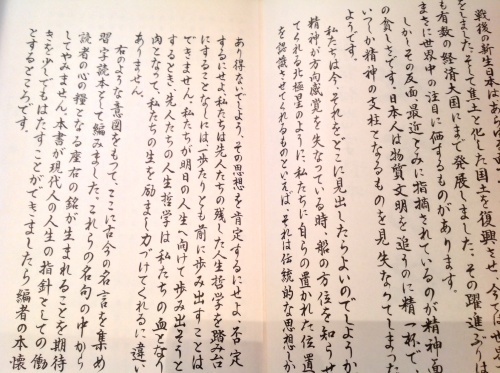 戦後の新生日本はあらゆる
をしました。そして焦土と化した国土を復興させ、今や世界
も有数の経済大国にまで発展しました。その躍進ぶりは
まさに世界中の注目に価するものがあります。
しかしその反面、最近とみに指摘されているのが精神面
の貧しさです。日本人は物質文明を追うのに精一杯で、
いつしか精神の支柱となるものを見失なってしまった
ようです。
私たちは今、それをどこに見出したらよいのでしょうか
精神が方向感覚を失なっている時、船の方位を知らせ
てくれる北極星のように、私たちに自らの置かれた位置
を認識させてくれるものといえば、それは伝統的な思想しか
あり得ないでしょう。その思想を肯定するにせよ、否定
するにせよ、私たちは先人たちの残した人生哲学を踏み台
にすることなしには、一歩たりとも前に歩み出すことは
できません。私たちが明日の人生へ向けて歩み出そうと
するとき、先人たちの人生哲学は、私たちの血となり
肉となって、私たちの生を励まし力づけてくれるに違い
ありません。
右のような意図をもって、ここに古今の名言を集め
習字読本として編みました。これらの名句の中から
読者の心の糧となる座右の銘が生まれることを期待
してやみません。本書が現代人の人生の指針としての働
きを少しでもはたすことができましたら編者の本懐
とするところです。